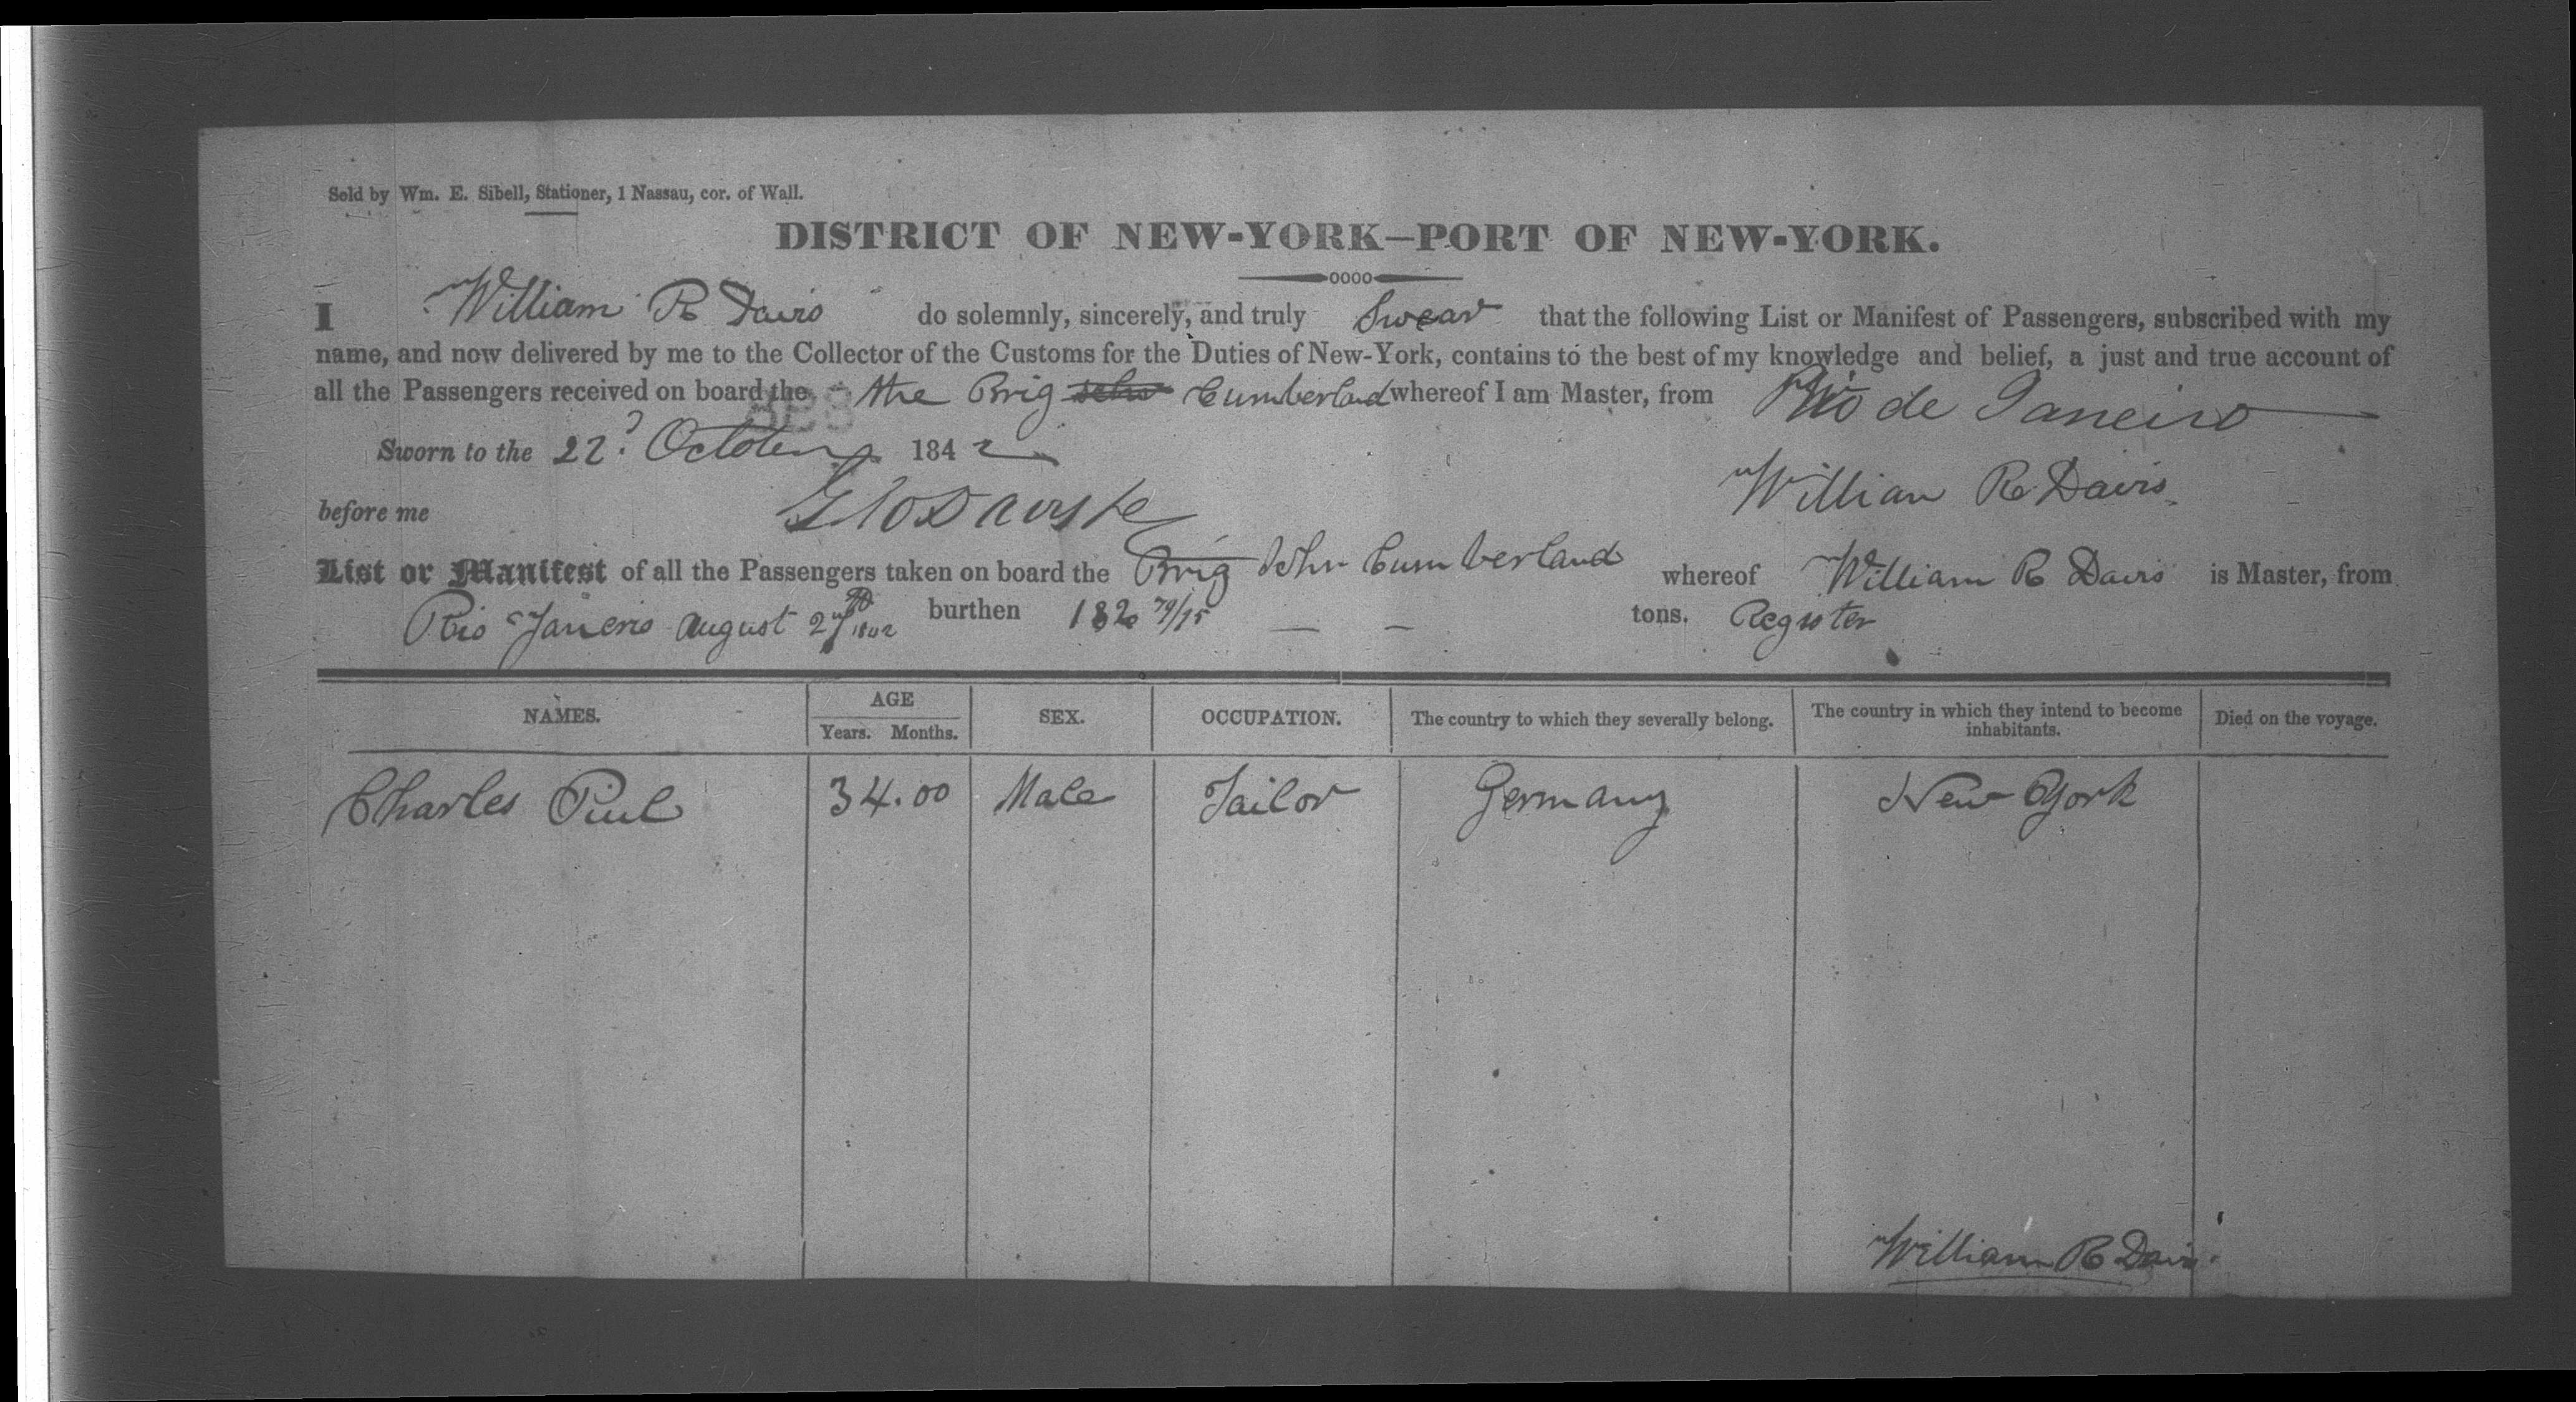 Sold by Wm. E. Sibell, Stationer, 1 Nassau, cor. of Wall.
DISTRICT OF NEW-YORK—PORT OF NEW-YORK.
I William R Davis do solemnly, sincerely, and truly Swear that the following List or Manifest of Passengers, subscribed with my
name, and now delivered by me to the Collector of the Customs for the Duties of New-York, contains to the best of my knowledge and belief, a just and true account of
all the Passengers received on board the the Brig Cumberland whereof I am Master, from Rio de Janeiro
Sworn to the 22d October 1842
William R Davis
before me
List or Manifest of all the Passengers taken on board the Brig John Cumberland whereof William R Davis is Master, from
Rio Janeiro August burthen tons. Register
NAMES. AGE Years. Months. SEX. OCCUPATION. The country to which they severally belong. The country in which they intend to become inhabitants. Died on the voyage.
Charles 34.00 Male Tailor Germany New York
William R Davis